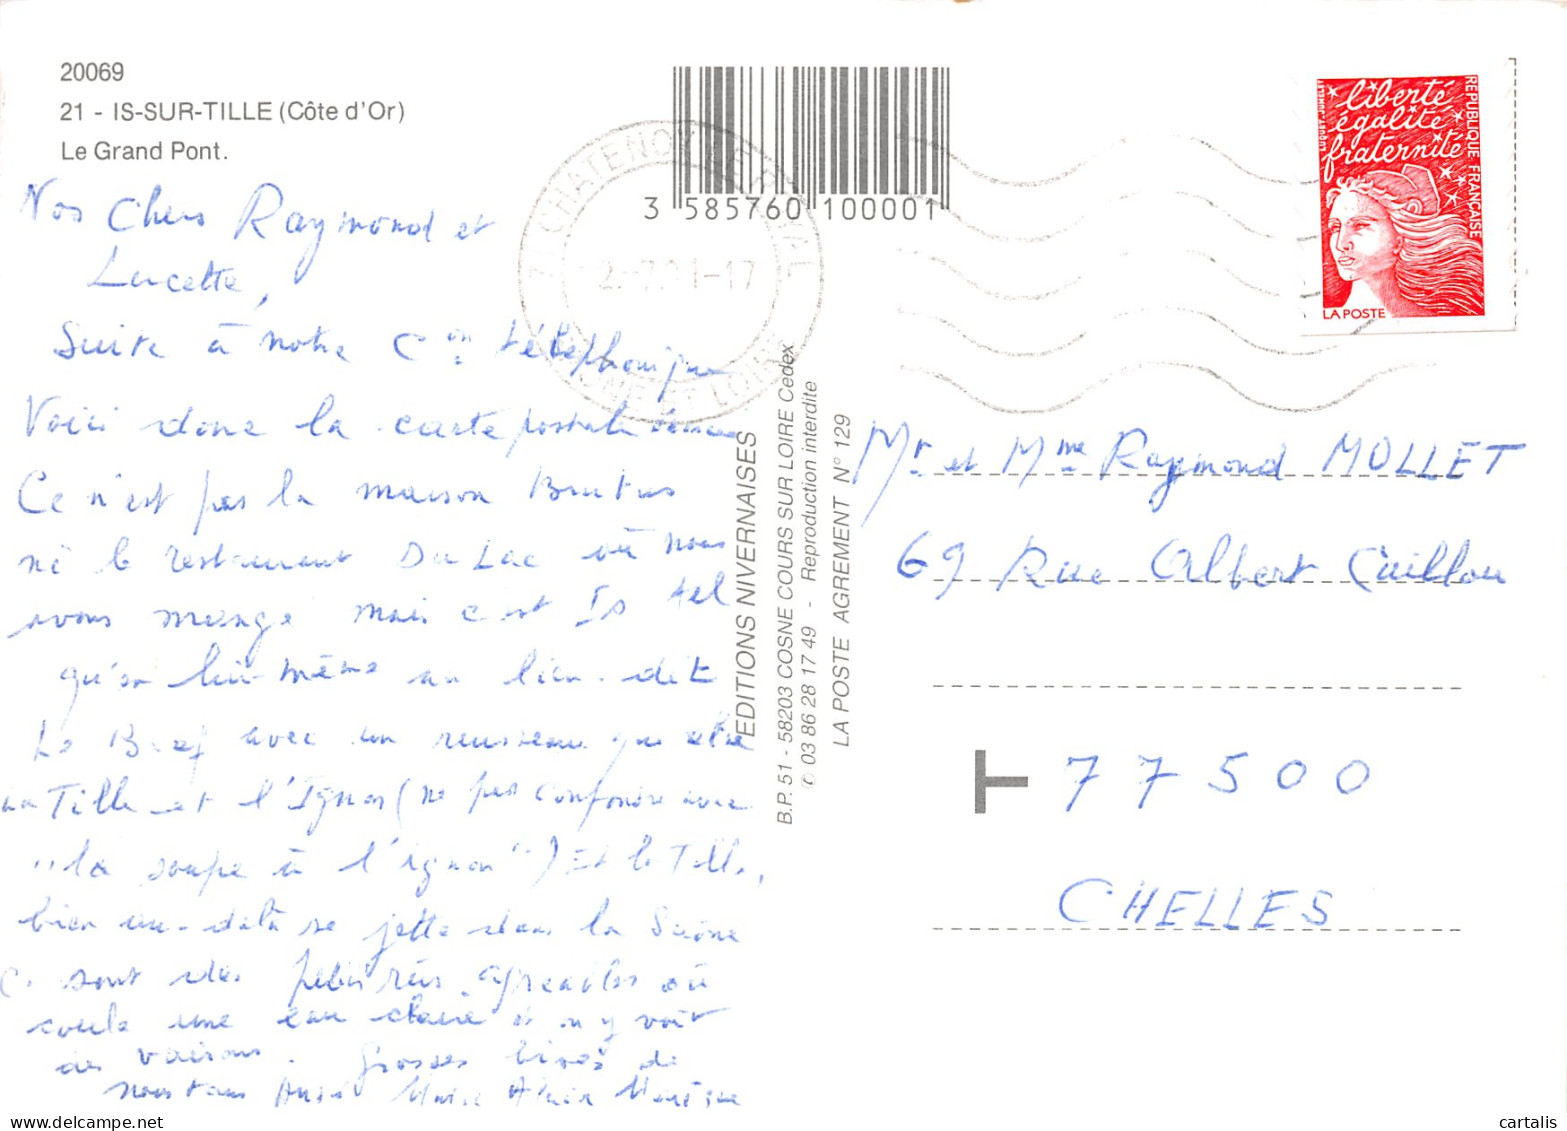 20069
21 - IS-SUR-TILLE (Côte d'Or)
Le Grand Pont.
Nos Chers Raymond et
Lucette,
Suite à notre C on téléphonique
Voici donc la carte postale
Ce n'est pas la maison Brutus
ni le restaurant Du Lac où nous
avons mangé mais c'est Is tel
qu'en lui-même au lieu-dit
Le avec un ruisseau que
La Tille et l'Ignon (ne pas confondre avec
"la soupe à l'ignon") Et la Tille,
bien au-delà se jette dans la Saône
Ce sont des petits agréables où
coule une eau claire et on y voit
des . Grosses bises de
nous tous André Marie Alain
3 585760 100001
71 CHATENOY LE ROYAL
SAONE ET LOIRE
EDITIONS NIVERNAISES
B.P. 51 - 58203 COSNE COURS SUR LOIRE Cedex
✆ 03 86 28 17 49 - Reproduction interdite
LA POSTE AGREMENT N° 129
liberté
égalité
fraternité
REPUBLIQUE FRANÇAISE
LA POSTE
Mr et Mme Raymond MOLLET
69 Rue Albert Caillou
T 77500
CHELLES
cartalis
www.delcampe.net